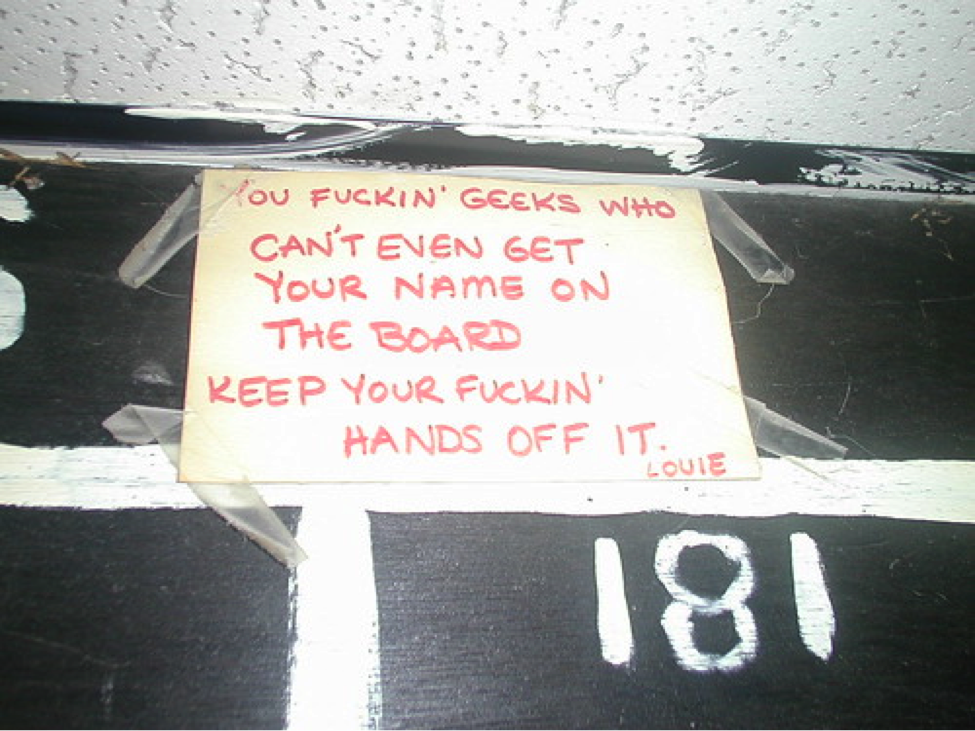 YOU FUCKIN' GEEKS WHO
CAN'T EVEN GET
YOUR NAME ON
THE BOARD
KEEP YOUR FUCKIN'
HANDS OFF IT.
LOUIE
181